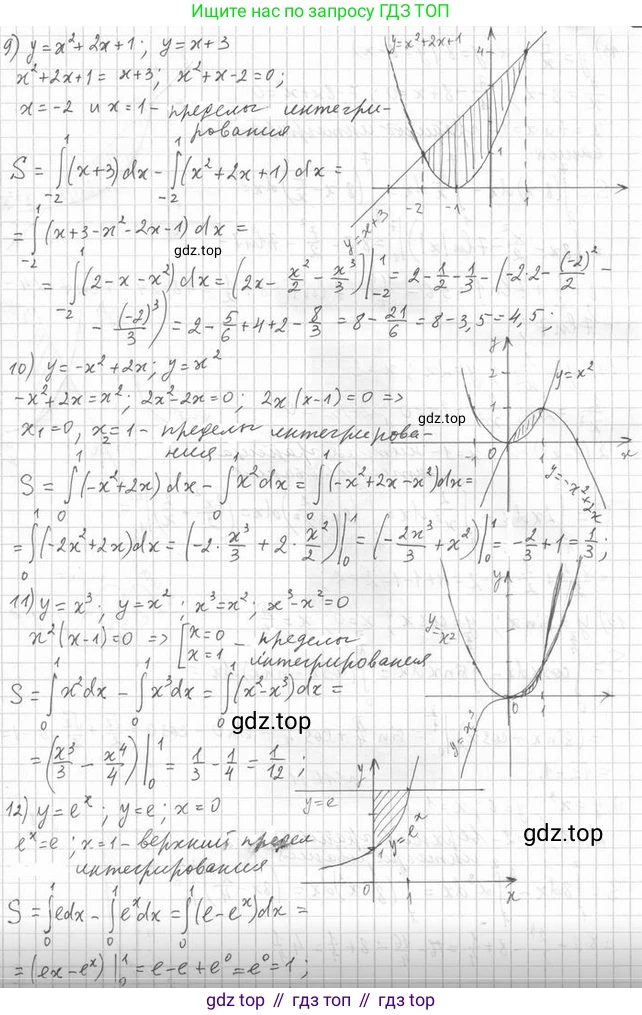 Ищите нас по запросу ГДЗ ТОП
9) y = x² + 2x + 1; y = x + 3
x² + 2x + 1 = x + 3; x² + x - 2 = 0;
x = -2 и x = 1 - пределы интегри-
рования
S = ∫₋₂¹ (x+3) dx - ∫₋₂¹ (x² + 2x + 1) dx =
= ∫₋₂¹ (x + 3 - x² - 2x - 1) dx =
gdz.top
= ∫₋₂¹ (2 - x - x²) dx = (2x - x²/2 - x³/3) |₋₂¹ = 2 - 1/2 - 1/3 - (-2·2 - (-2)²/2 -
- (-2)³/3) = 2 - 5/6 + 4 + 2 - 8/3 = 8 - 21/6 = 8 - 3,5 = 4,5;
y = x² + 2x + 1
4
1
-2 -1 1
y = x + 3
10) y = -x² + 2x; y = x²
-x² + 2x = x²; 2x² - 2x = 0; 2x (x - 1) = 0 =>
gdz.top
x₁ = 0, x₂ = 1 - пределы интегрирова-
ния
S = ∫₀¹ (-x² + 2x) dx - ∫₀¹ x² dx = ∫₀¹ (-x² + 2x - x²) dx =
= ∫₀¹ (-2x² + 2x) dx = (-2·x³/3 + 2·x²/2) |₀¹ = (-2x³/3 + x²) |₀¹ = -2/3 + 1 = 1/3;
y
2
y = x²
1
-1 0 1 x
y = -x² + 2x
11) y = x³; y = x²; x³ = x²; x³ - x² = 0
x² (x - 1) = 0 => [x = 0
[x = 1 - пределы
интегрирования
S = ∫₀¹ x² dx - ∫₀¹ x³ dx = ∫₀¹ (x² - x³) dx =
gdz.top
= (x³/3 - x⁴/4) |₀¹ = 1/3 - 1/4 = 1/12;
y
y = x²
0 1
y = x³
12) y = eˣ; y = e; x = 0
eˣ = e; x = 1 - верхний предел
интегрирования
gdz.top
S = ∫₀¹ e dx - ∫₀¹ eˣ dx = ∫₀¹ (e - eˣ) dx =
= (ex - eˣ) |₀¹ = e - e + e⁰ = e⁰ = 1;
y
y = e
y = eˣ
1
0 1 x
gdz top // гдз топ // gdz.top